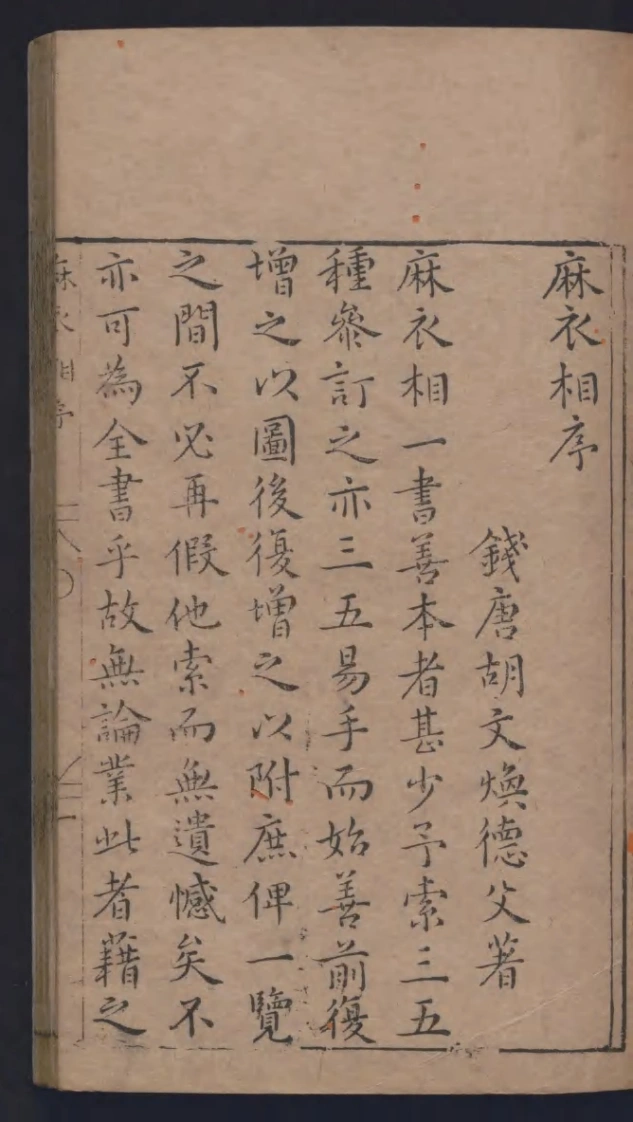 麻衣相序
錢唐胡文煥德父著
麻衣相一書善本者甚少予索三五
種參訂之亦三五易手而始善前復
增之以圖後復增之以附庶俾一覽
之間不必再假他索而無遺憾矣不
亦可為全書乎故無論業此者藉之
麻衣相序